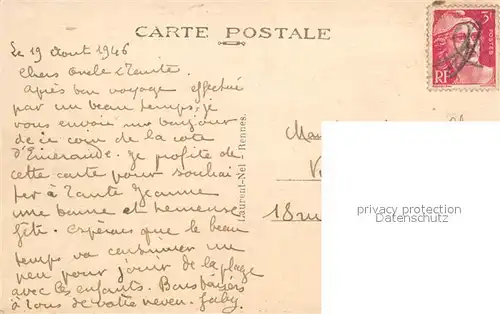 CARTE POSTALE
3F
POSTES
RF
Le 19 Aout 1946
Chers Oncle & Tante.
Après bon voyage effectué
par un beau temps, je
vous envoie un bonjour
de ce coin de la cote
d'Emeraude. Je profite de
cette carte pour souhai
ter à Tante Jeanne
une bonne et heureuse
fête. Espérons que le beau
temps va continuer un
peu pour jouir de la plage
avec les enfants. Bons baisers
à tous de votre neveu. Gaby.
Laurent-Nel - Rennes.
18 rue
privacy protection
Datenschutz